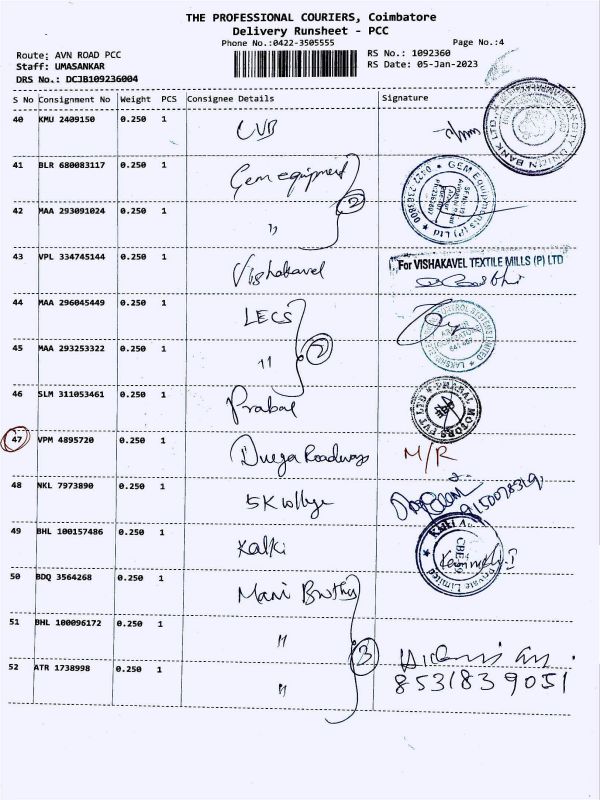 THE PROFESSIONAL COURIERS, Coimbatore
Delivery Runsheet - PCC
Phone No.:0422-3505555
Page No.:4
Route: AVN ROAD PCC
Staff: UMASANKAR
DRS No.: DCJB109236004
RS No.: 1092360
RS Date: 05-Jan-2023
S No Consignment No Weight PCS Consignee Details Signature
40 KMU 2409150 0.250 1 CUB
41 BLR 680083117 0.250 1 Gem equipment
42 MAA 293091024 0.250 1 "
2
43 VPL 334745144 0.250 1 Vishakavel For VISHAKAVEL TEXTILE MILLS (P) LTD
44 MAA 296045449 0.250 1 LECS
45 MAA 293253322 0.250 1 "
2
46 SLM 311053461 0.250 1 Prabal PRABAL MOTORS PVT LTD
47 VPM 4895720 0.250 1 Durga Roadways M/R
48 NKL 7973890 0.250 1
49 BHL 100157486 0.250 1 Kalki
50 BDQ 3564268 0.250 1 Mani Brothers
51 BHL 100096172 0.250 1 "
52 ATR 1738998 0.250 1 "
3
8531839051